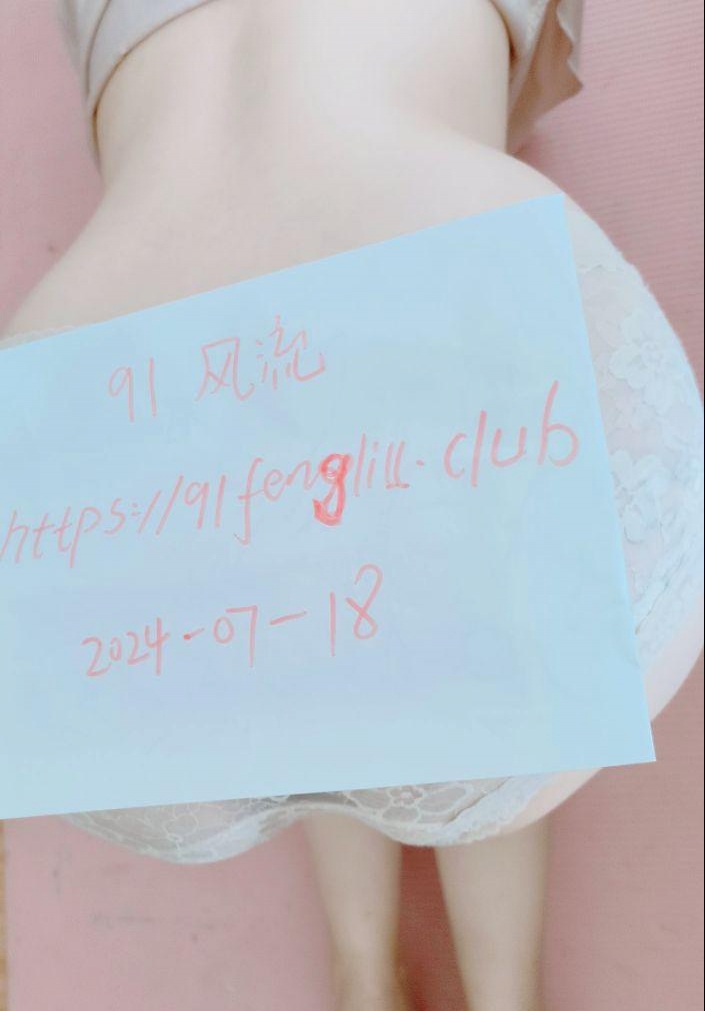 91 风流
https://91fengliu.club
2024-07-18